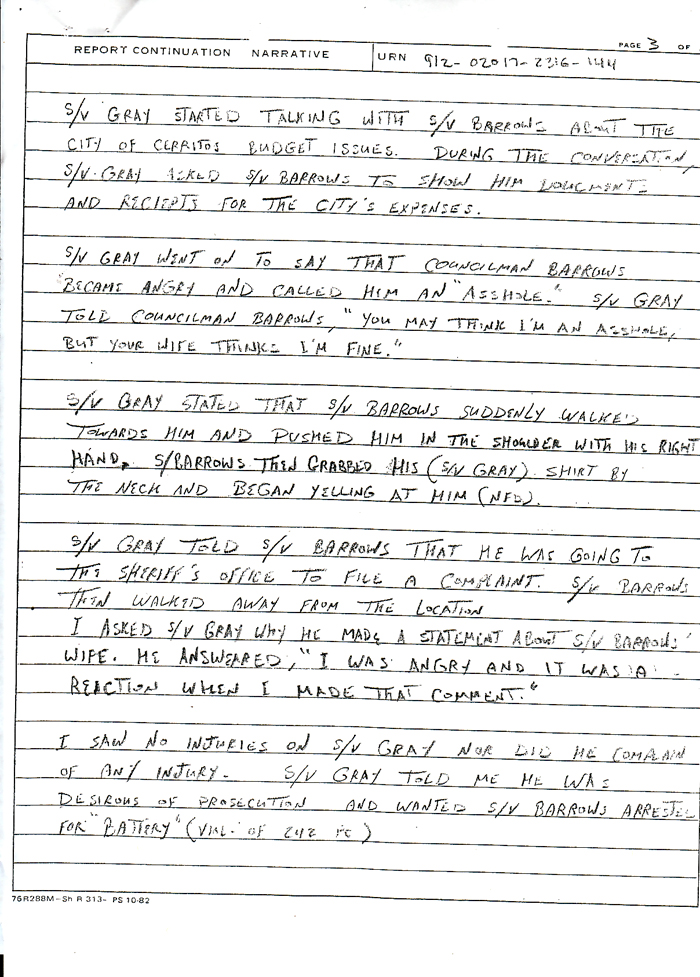 PAGE 3 OF
REPORT CONTINUATION NARRATIVE URN 912-02017-2316-144
S/V GRAY STARTED TALKING WITH S/V BARROWS ABOUT THE
CITY OF CERRITOS BUDGET ISSUES. DURING THE CONVERSATION,
S/V GRAY ASKED S/V BARROWS TO SHOW HIM DOUCMENTS
AND RECIEPTS FOR THE CITY'S EXPENSES.
S/V GRAY WENT ON TO SAY THAT COUNCILMAN BARROWS
BECAME ANGRY AND CALLED HIM AN "ASSHOLE." S/V GRAY
TOLD COUNCILMAN BARROWS, "YOU MAY THINK I'M AN ASSHOLE,
BUT YOUR WIFE THINKS I'M FINE."
S/V GRAY STATED THAT S/V BARROWS SUDDENLY WALKED
TOWARDS HIM AND PUSHED HIM IN THE SHOULDER WITH HIS RIGHT
HAND. S/BARROWS THEN GRABBED HIS (S/V GRAY) SHIRT BY
THE NECK AND BEGAN YELLING AT HIM (NFD).
S/V GRAY TOLD S/V BARROWS THAT HE WAS GOING TO
THE SHERIFF'S OFFICE TO FILE A COMPLAINT. S/V BARROWS
THEN WALKED AWAY FROM THE LOCATION
I ASKED S/V GRAY WHY HE MADE A STATEMENT ABOUT S/V BARROWS'
WIFE. HE ANSWEARED, "I WAS ANGRY AND IT WAS A
REACTION WHEN I MADE THAT COMMENT."
I SAW NO INJURIES ON S/V GRAY NOR DID HE COMPLAIN
OF ANY INJURY. S/V GRAY TOLD ME HE WAS
DESIROUS OF PROSECUTION AND WANTED S/V BARROWS ARRESTED
FOR "BATTERY" (VIAL. OF 242 PC)
76R288M-Sh R 313- PS 10-82